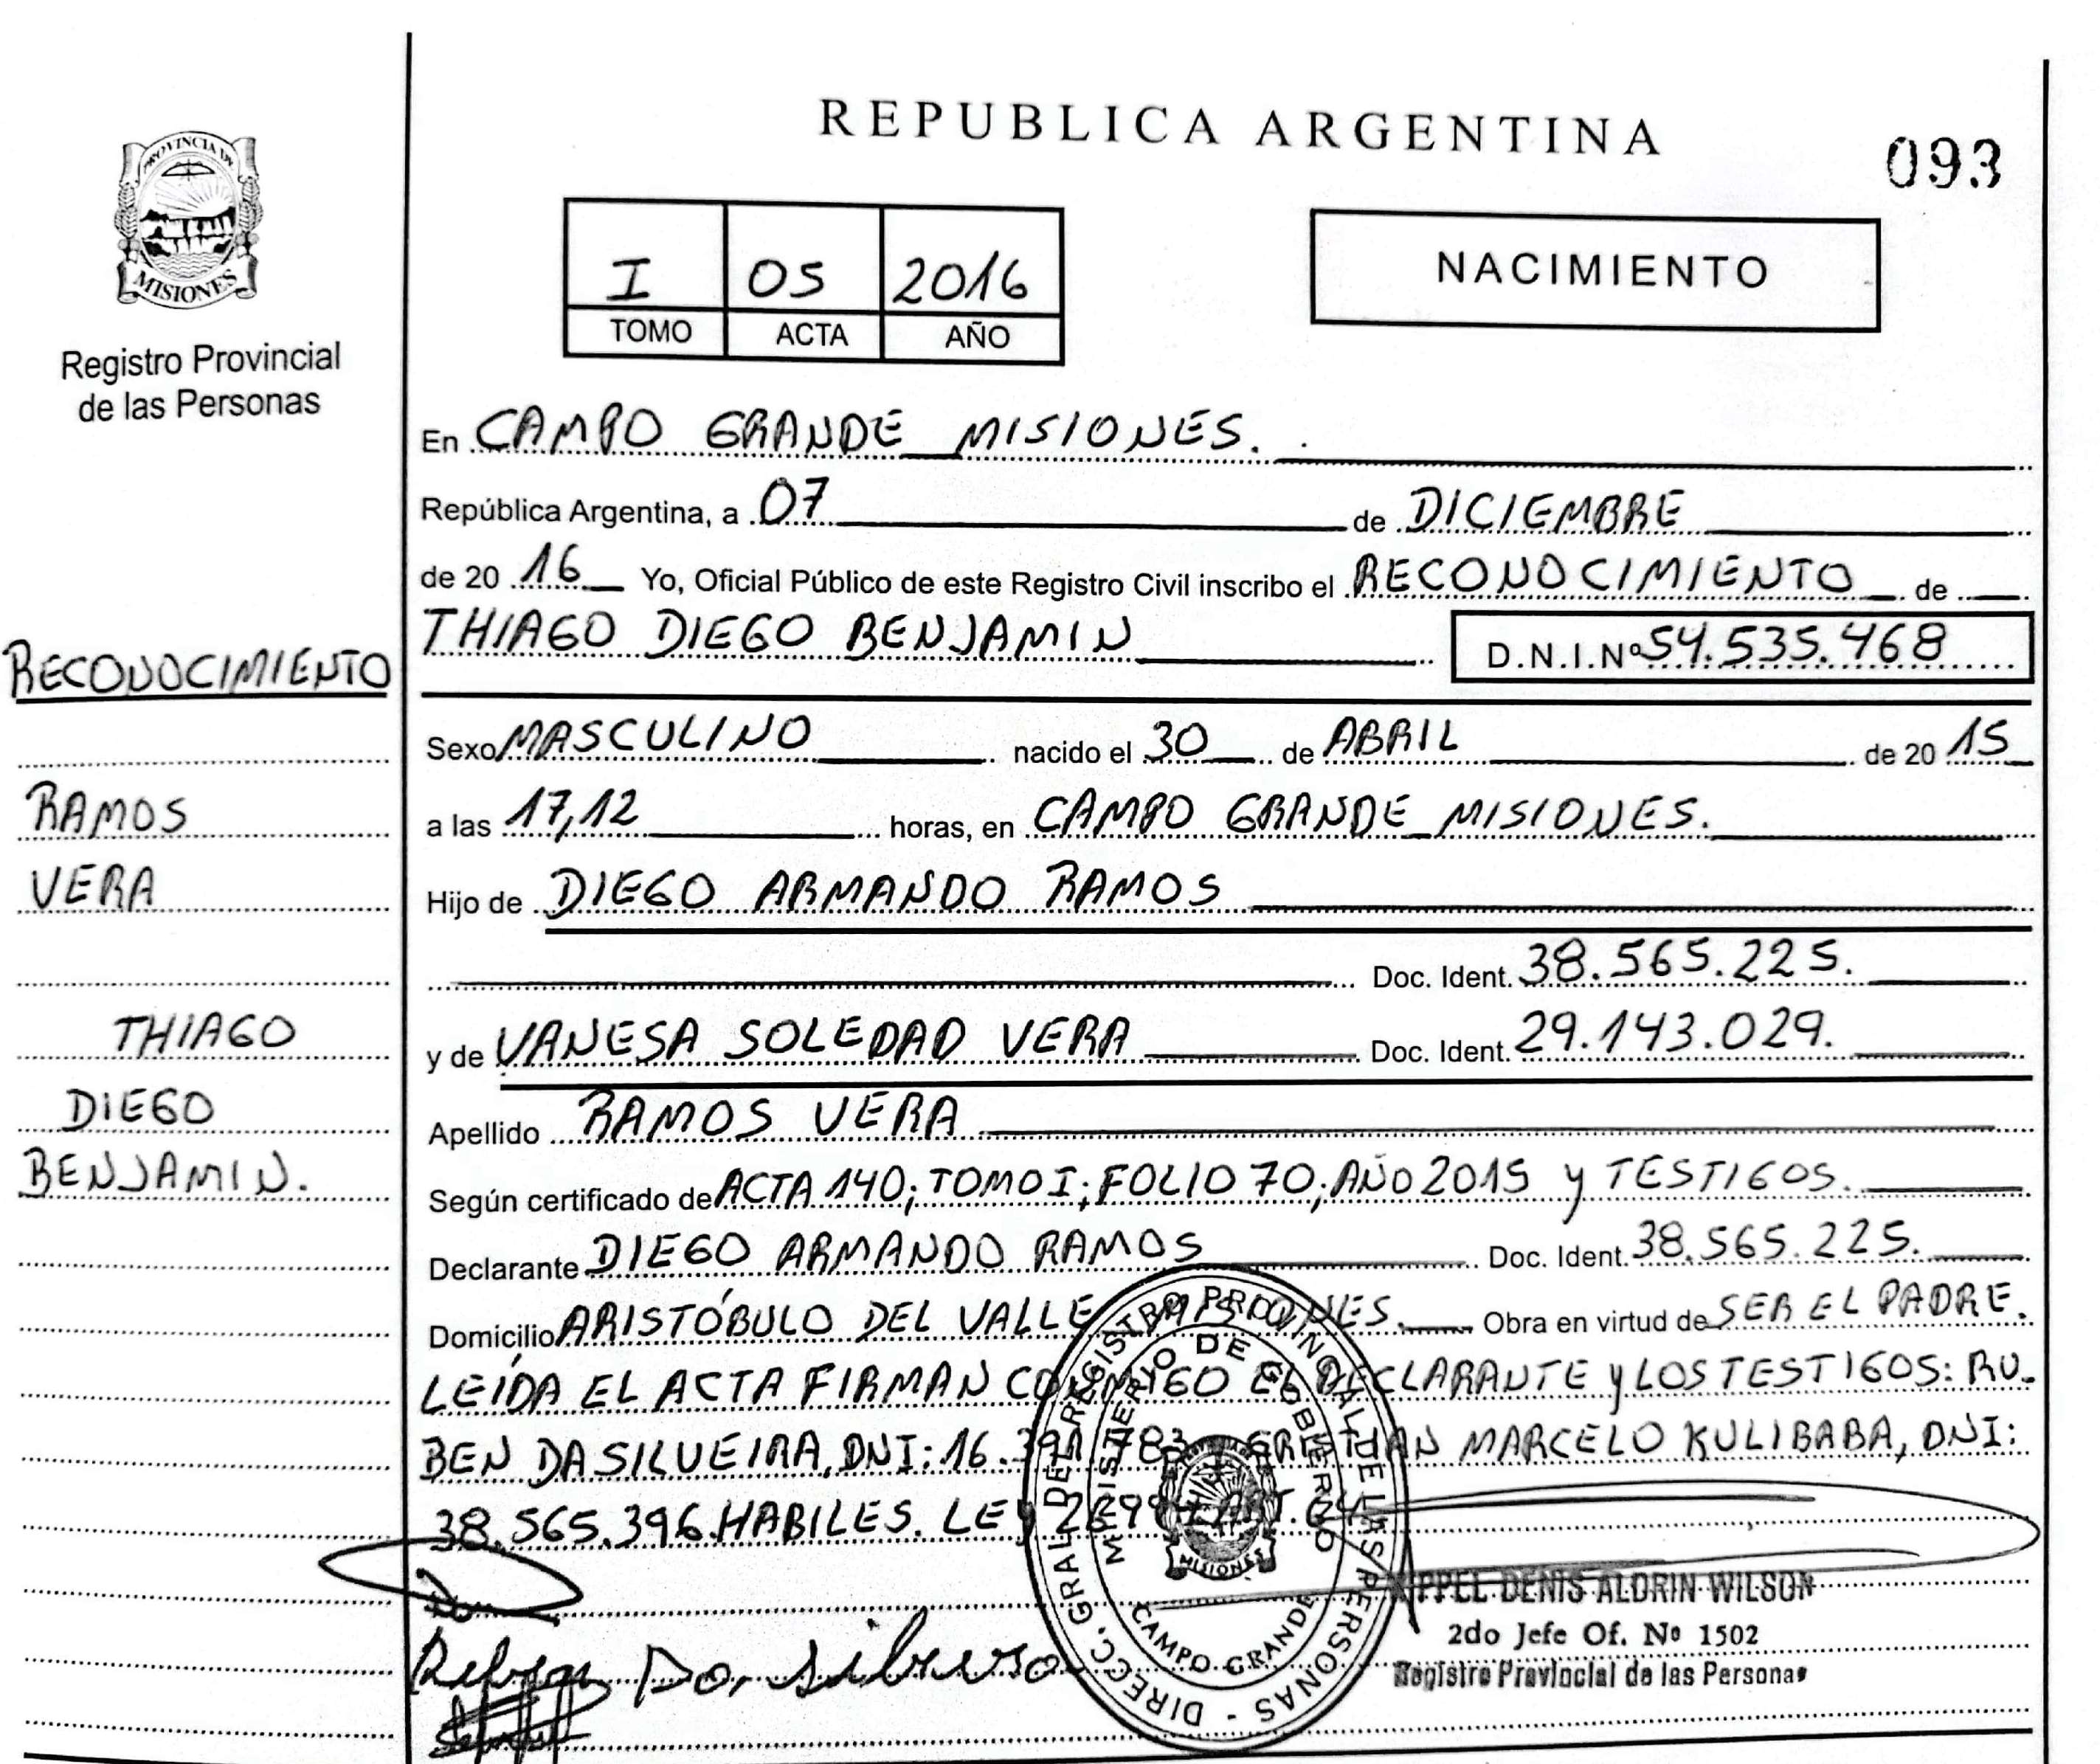 PROVINCIA DE
MISIONES
Registro Provincial
de las Personas
RECONOCIMIENTO
RAMOS
VERA
THIAGO
DIEGO
BENJAMIN.
REPUBLICA ARGENTINA
093
I 05 2016
TOMO ACTA AÑO
NACIMIENTO
En CAMPO GRANDE MISIONES.
República Argentina, a 07 de DICIEMBRE
de 20 16 Yo, Oficial Público de este Registro Civil inscribo el RECONOCIMIENTO de
THIAGO DIEGO BENJAMIN D.N.I.Nº 54.535.468
Sexo MASCULINO nacido el 30 de ABRIL de 20 15
a las 17,12 horas, en CAMPO GRANDE MISIONES.
Hijo de DIEGO ARMANDO RAMOS
Doc. Ident. 38.565.225.
y de VANESA SOLEDAD VERA Doc. Ident. 29.143.029.
Apellido RAMOS VERA
Según certificado de ACTA 140; TOMO I; FOLIO 70; AÑO 2015 y TESTIGOS.
Declarante DIEGO ARMANDO RAMOS Doc. Ident. 38.565.225.
Domicilio ARISTÓBULO DEL VALLE MISIONES. Obra en virtud de SER EL PADRE.
LEÍDA EL ACTA FIRMAN CONMIGO EL DECLARANTE y LOS TESTIGOS: RU-
BEN DA SILVEIRA, DNI: 16. MARCELO KULIBABA, DNI:
38.565.396. HABILES. LEY
DIRECC. GRAL DE REGISTRO PROVINCIAL DE LAS PERSONAS -
MINISTERIO DE GOBIERNO
MISIONES
CAMPO GRANDE
DENIS ALDRIN WILSON
2do Jefe Of. Nº 1502
Registro Provincial de las Personas